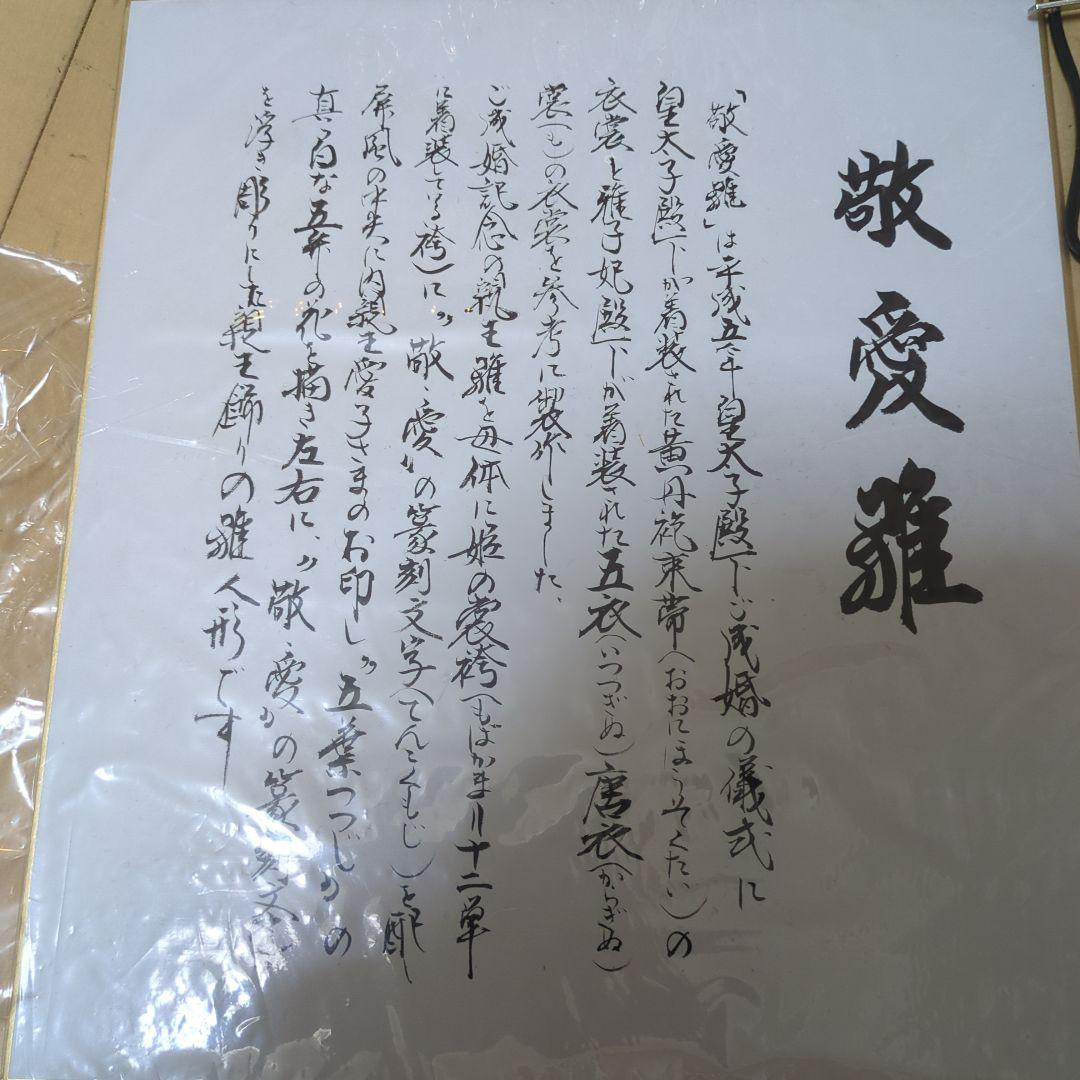 敬愛雛
「敬愛雛」は平成五年皇太子殿下ご成婚の儀式に
皇太子殿下が着装された黄丹袍束帯(おおにほうそくたい)の
衣裳と雅子妃殿下が着装された五衣(いつつぎぬ)唐衣(からぎぬ)
裳(も)の衣裳を参考に製作しました、
ご成婚記念の親王雛を母体に姫の裳袴(もばかま=十二単
に着装してる袴)に〃敬、愛〃の篆刻文字(てんこくもじ)を配し
屏風の中央に内親王愛子さまのお印し〃五葉つつじ〃の
真っ白な五弁の花を描き左右に、〃敬、愛〃の篆刻文字
を浮き彫りにした親王飾りの雛人形です